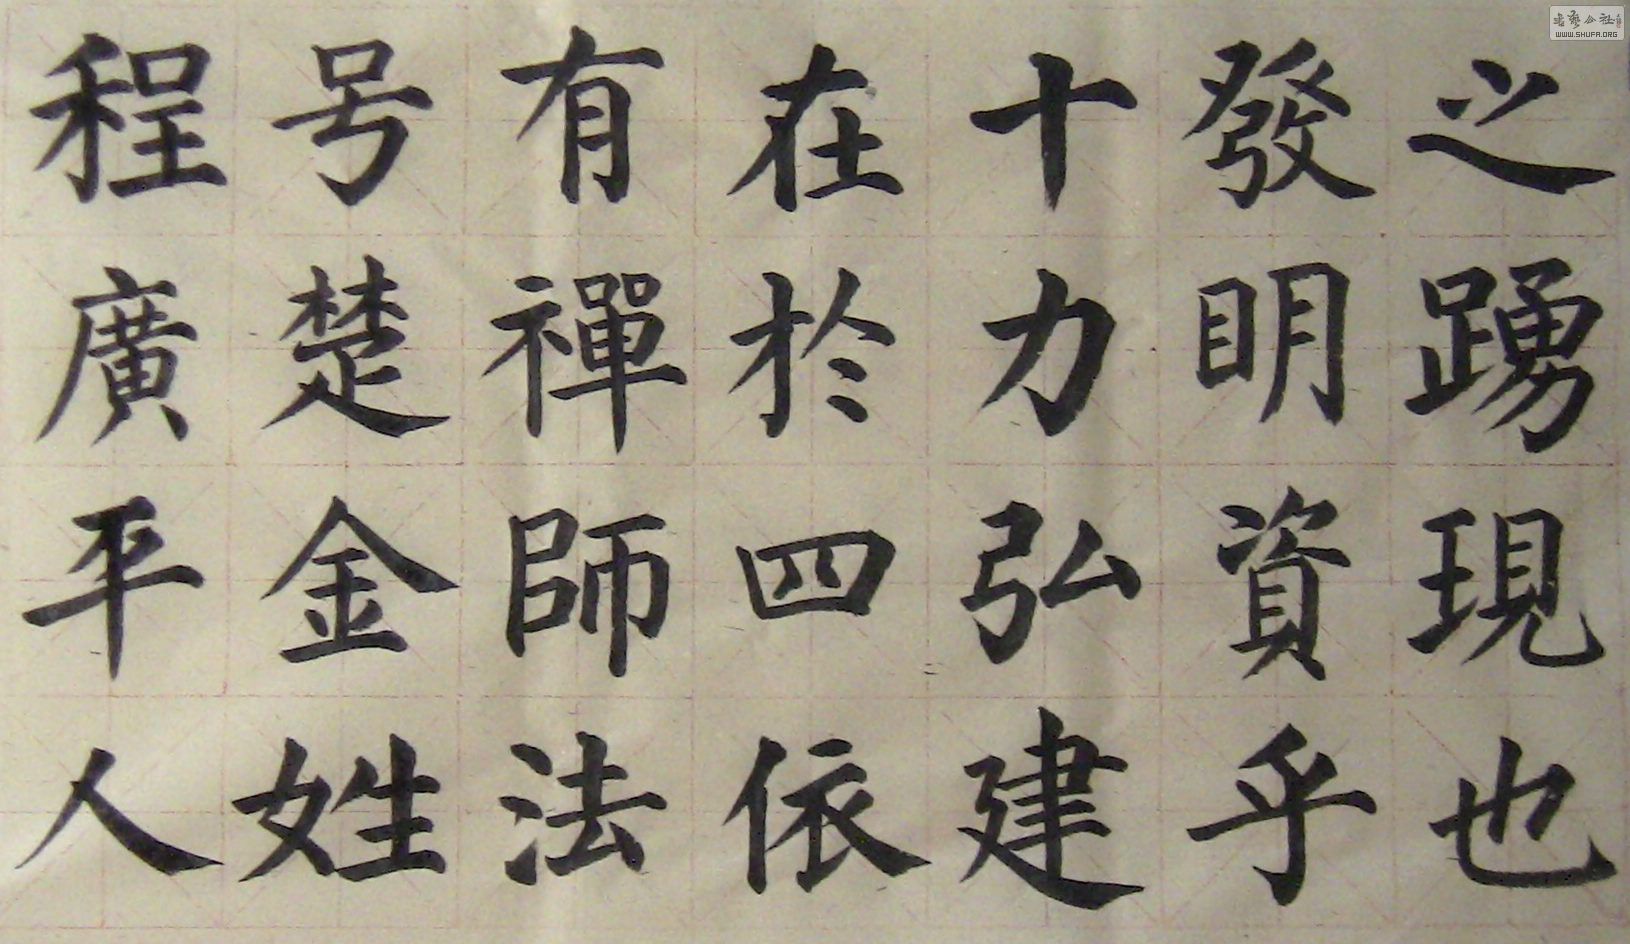 之踴現也
發明資乎
十力弘建
在於四依
有禪師法
号楚金姓
程廣平人
WWW.SHUFA.ORG